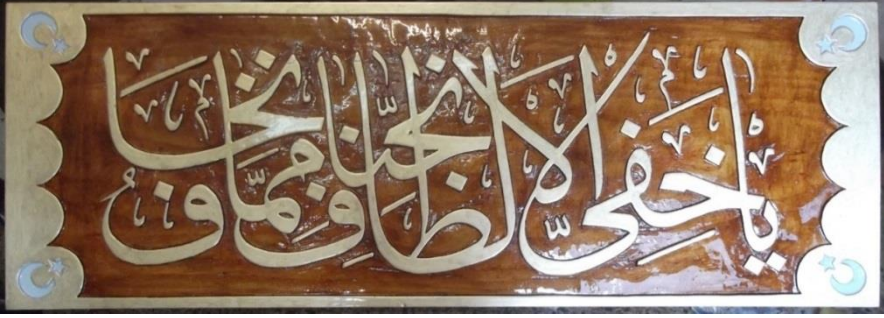 يا خفي الألطاف نجنا مما نخاف